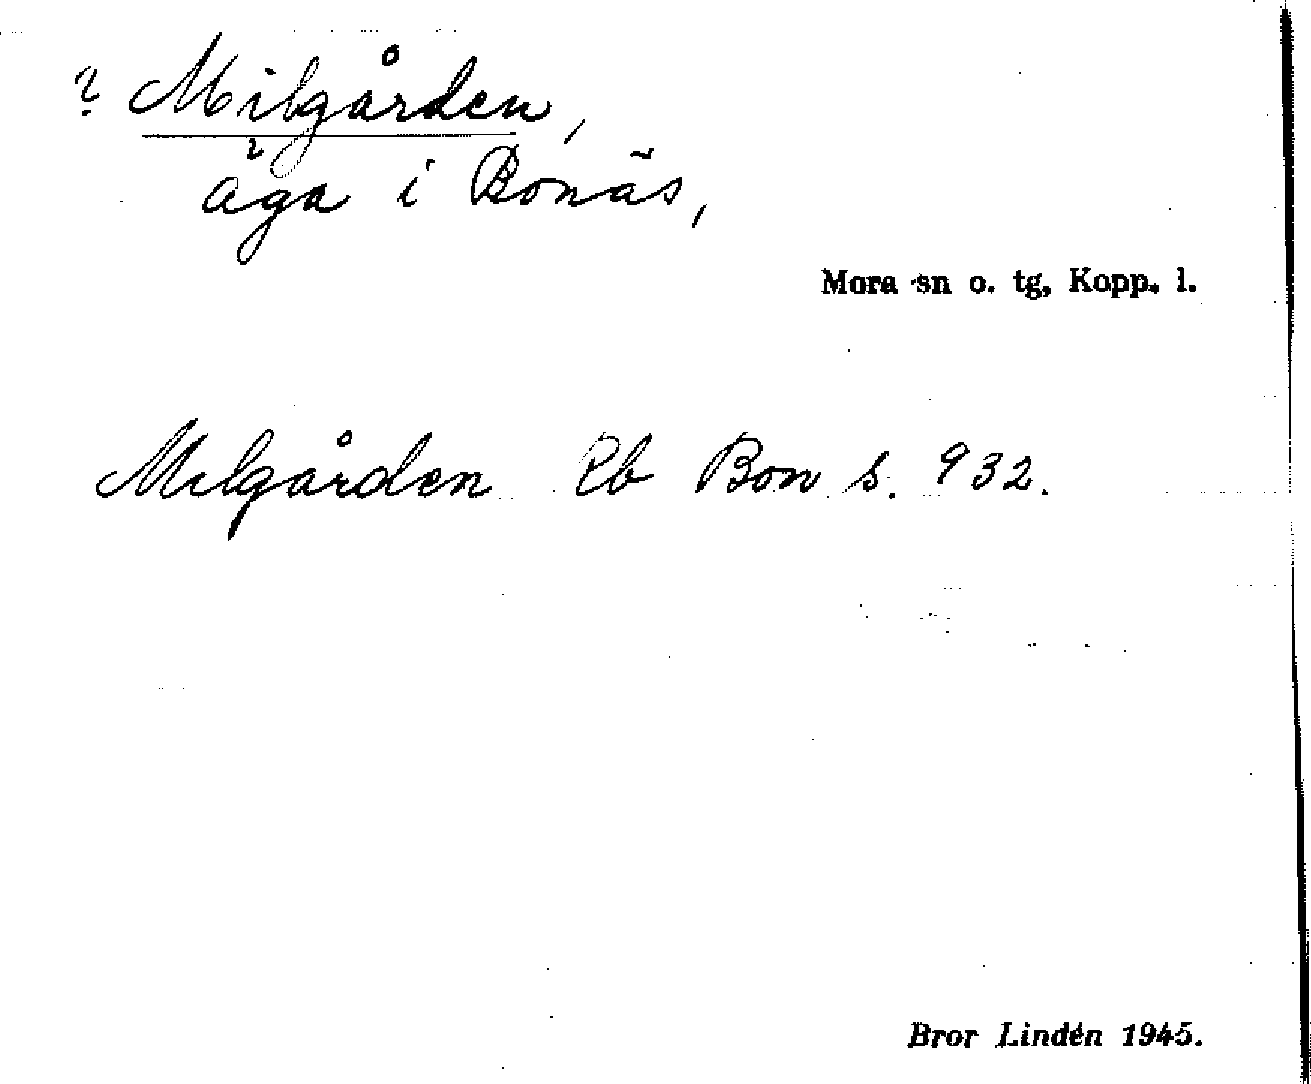 ? Milgården,
äga i Bonäs,
Mora sn o. tg, Kopp. l.
Milgården Rb Bon s. 932.
Bror Lindén 1945.